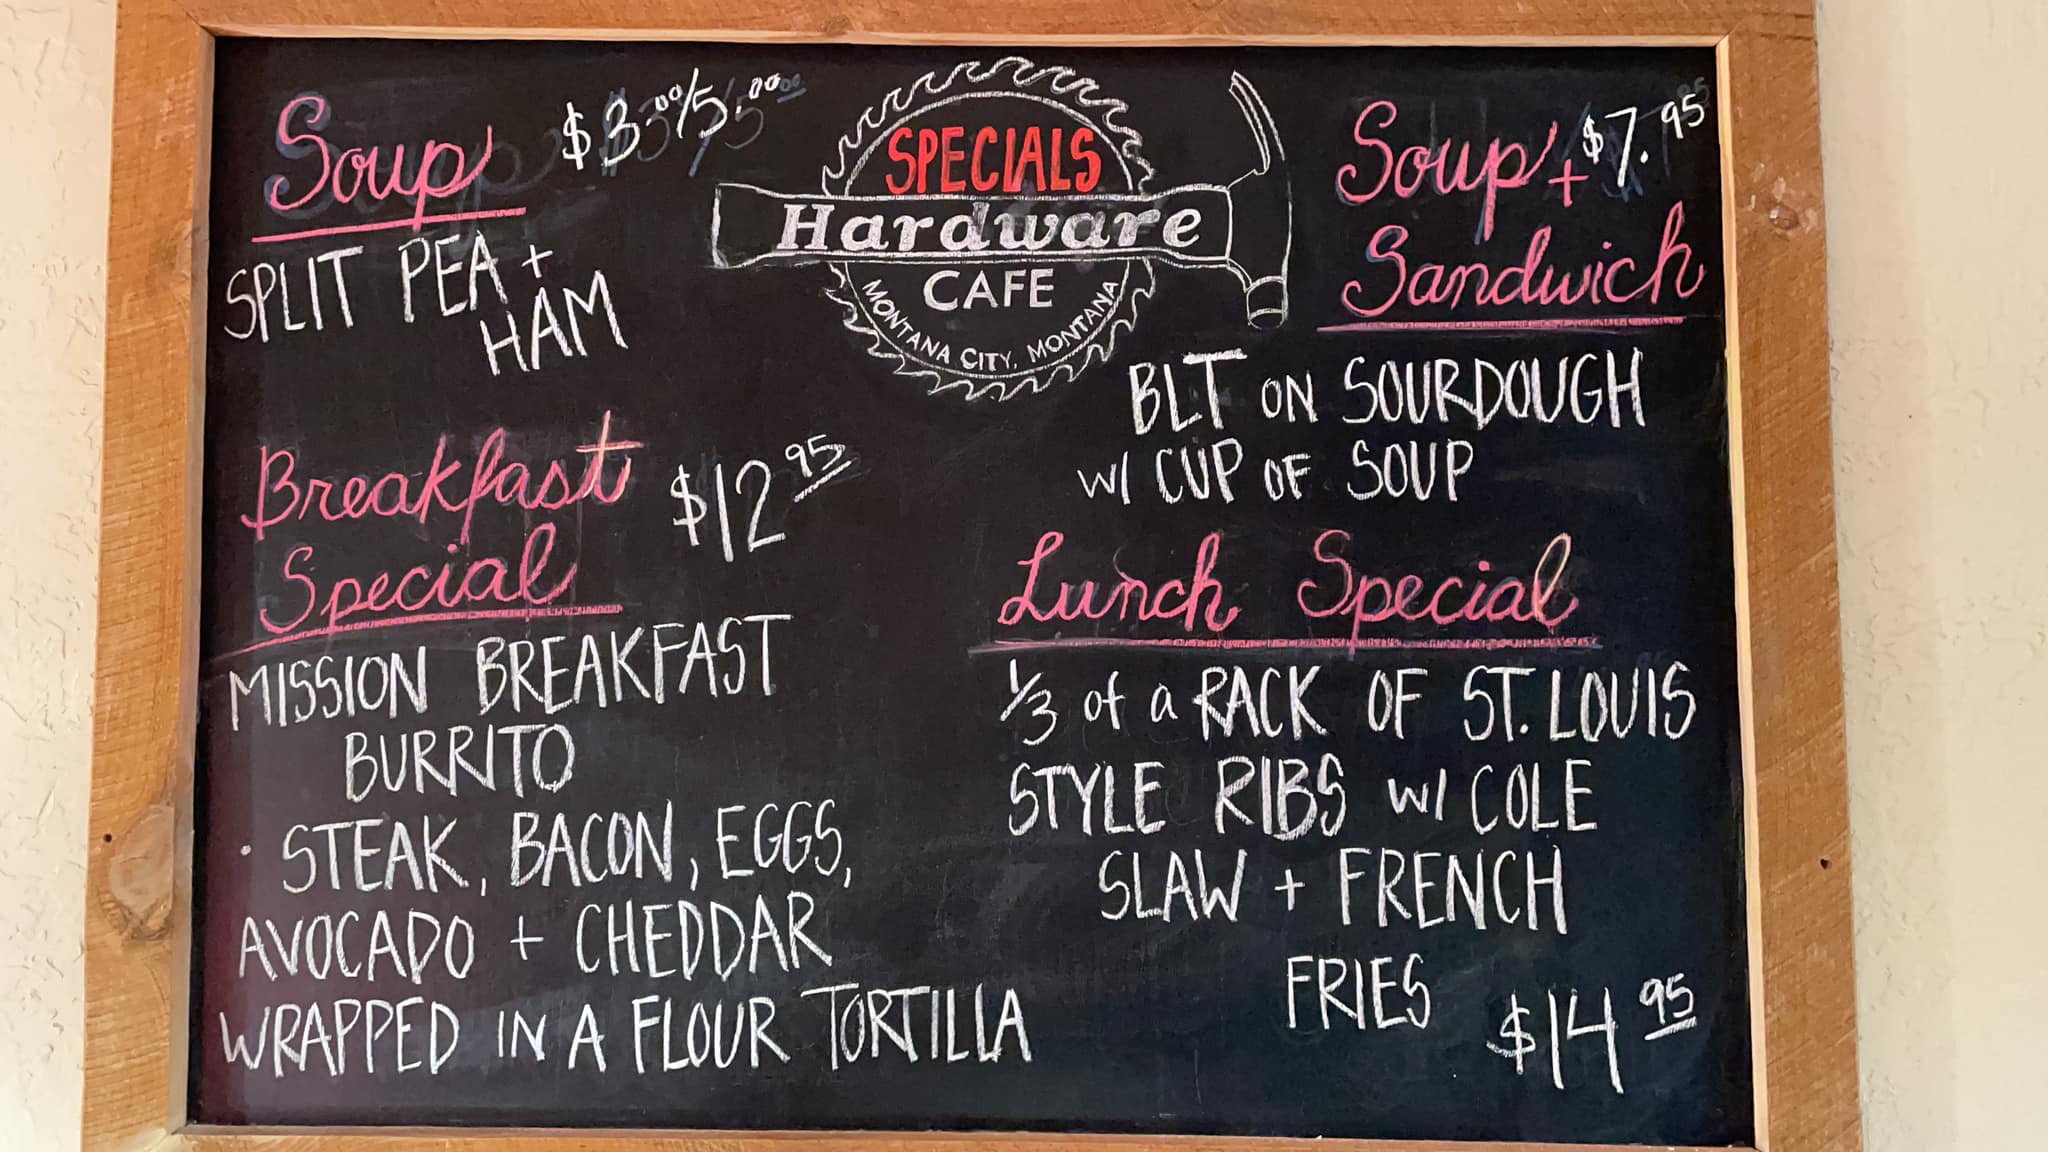 Soup $3.00/5.00
SPLIT PEA +
HAM
SPECIALS
Hardware
CAFE
MONTANA CITY, MONTANA
Soup + $7.95
Sandwich
BLT ON SOURDOUGH
W/ CUP OF SOUP
Breakfast $12 95
Special
MISSION BREAKFAST
BURRITO
· STEAK, BACON, EGGS,
AVOCADO + CHEDDAR
WRAPPED IN A FLOUR TORTILLA
Lunch Special
1/3 of a RACK OF ST. LOUIS
STYLE RIBS W/ COLE
SLAW + FRENCH
FRIES $14 95